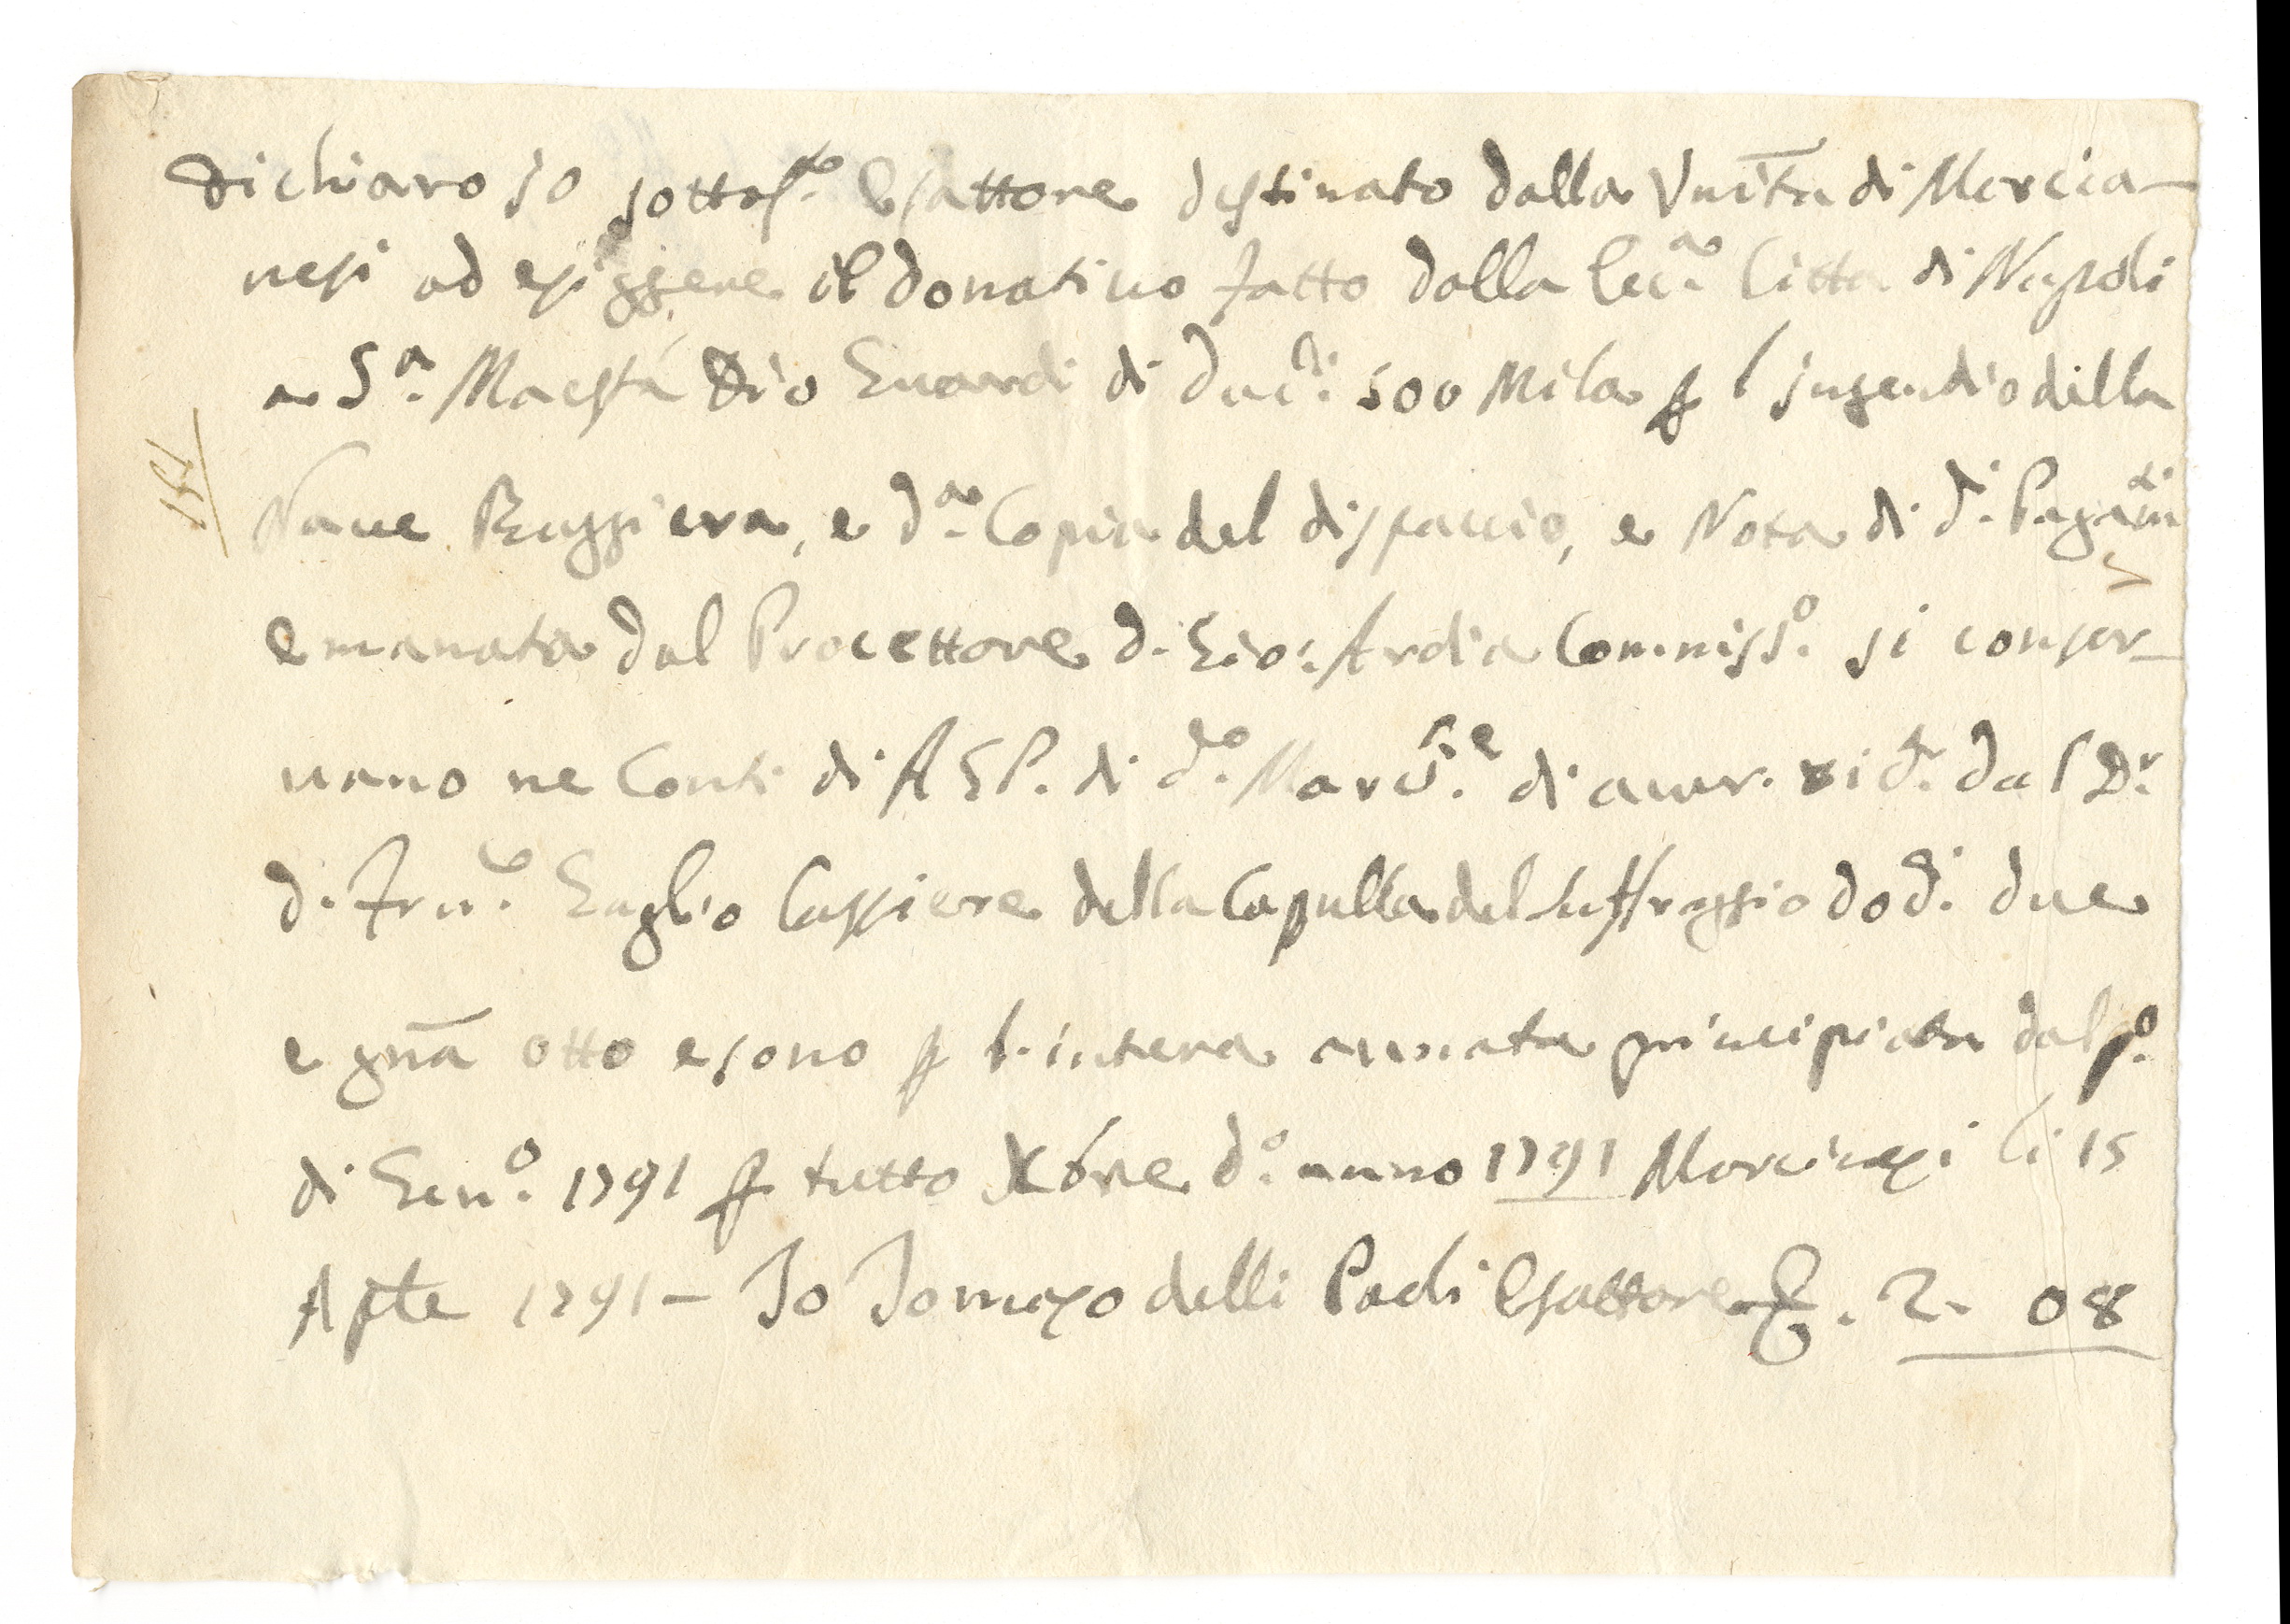 Dichiaro Io sottos.to Esattore destinato dalla Vnītà di Marcia-
nesi ad esiggere il donativo fatto dalla Ecc.a Città di Napoli
a S.a Maestà Dio Guardi di duc.ti 500 Mila p l'Ingendio della
Nave Ruggiera, e d.a Copia del dispaccio, e Nota di d.i Pagam.ti
emanata dal Procettore D. Gio: Ardia Commiss.o si conser-
vano ne Conti di A G P. di d.o Marc.se di aver. dal D.r
D. Fran.co Gaglio Cassiere della Capella del Suffraggio do d.i due
e gnā otto e sono p l'intera annata principiata dal p.o
di Gen.o 1791 p tutto Xbre d.o anno 1791 Marcianesi li 15
Aple 1791 - Io Tomaso delli Paoli Esattore . 2. 08
151